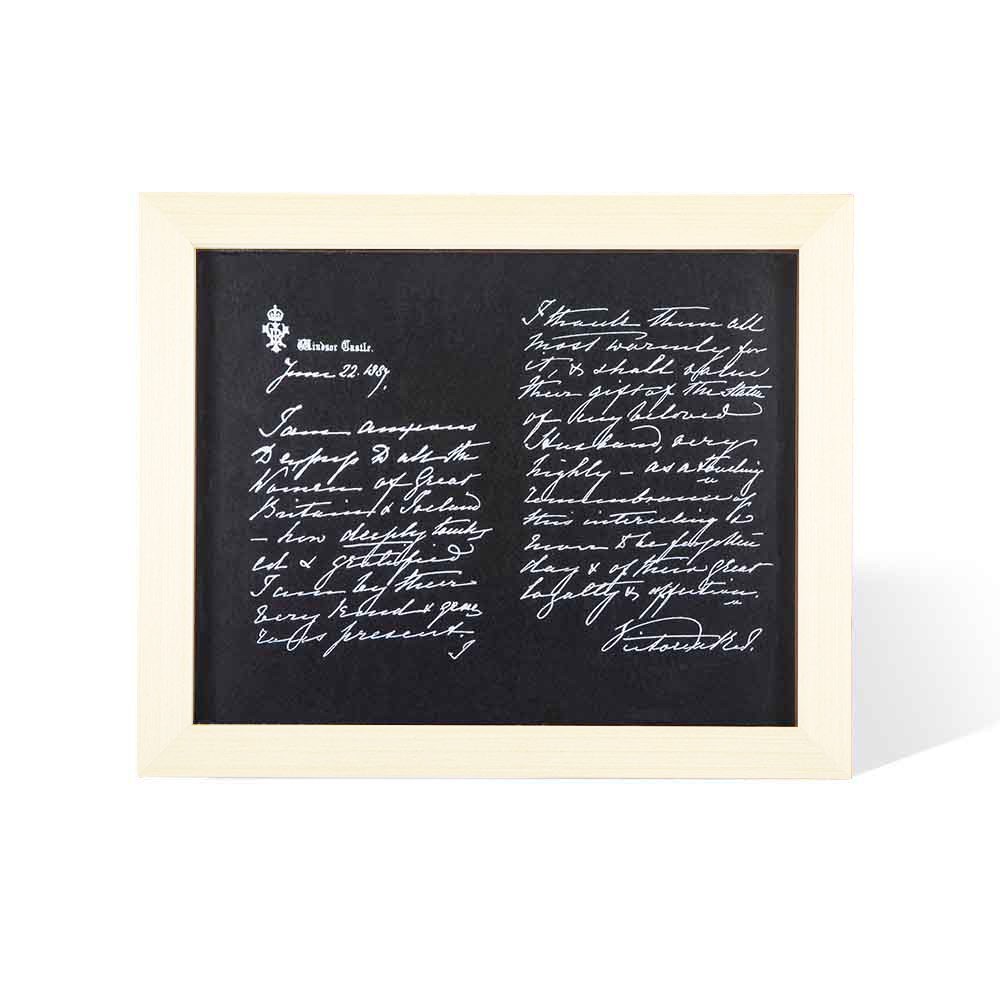 Windsor Castle.
June 22. 1887.
I am anxious
to express to all the
Women of Great
Britain & Ireland
– how deeply touch
ed & gratified
I am by their
very kind & gene
rous present.
I
I thank them all
most warmly for
it, & shall value
their gift of the statue
of my beloved
Husband, very
highly – as a touching
remembrance of
this interesting &
never to be forgotten
day & of their great
loyalty & affection.
Victoria R & I.